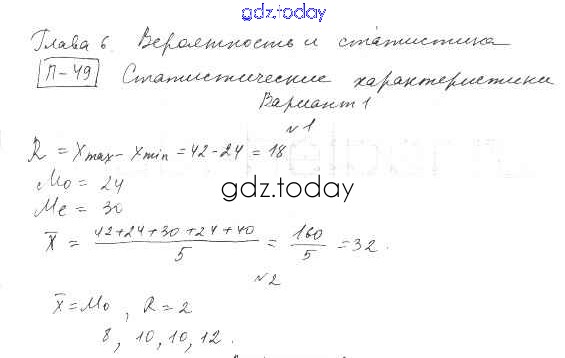 gdz.today
Глава 6. Вероятность и статистика
П-49 Статистические характеристики
Вариант 1
№1
R = Xmax - Xmin = 42 - 24 = 18
Mo = 24
gdz.today
Me = 30
X̄ = (42+24+30+24+40)/5 = 160/5 = 32.
№2
X̄ = Mo, R = 2
8, 10, 10, 12.